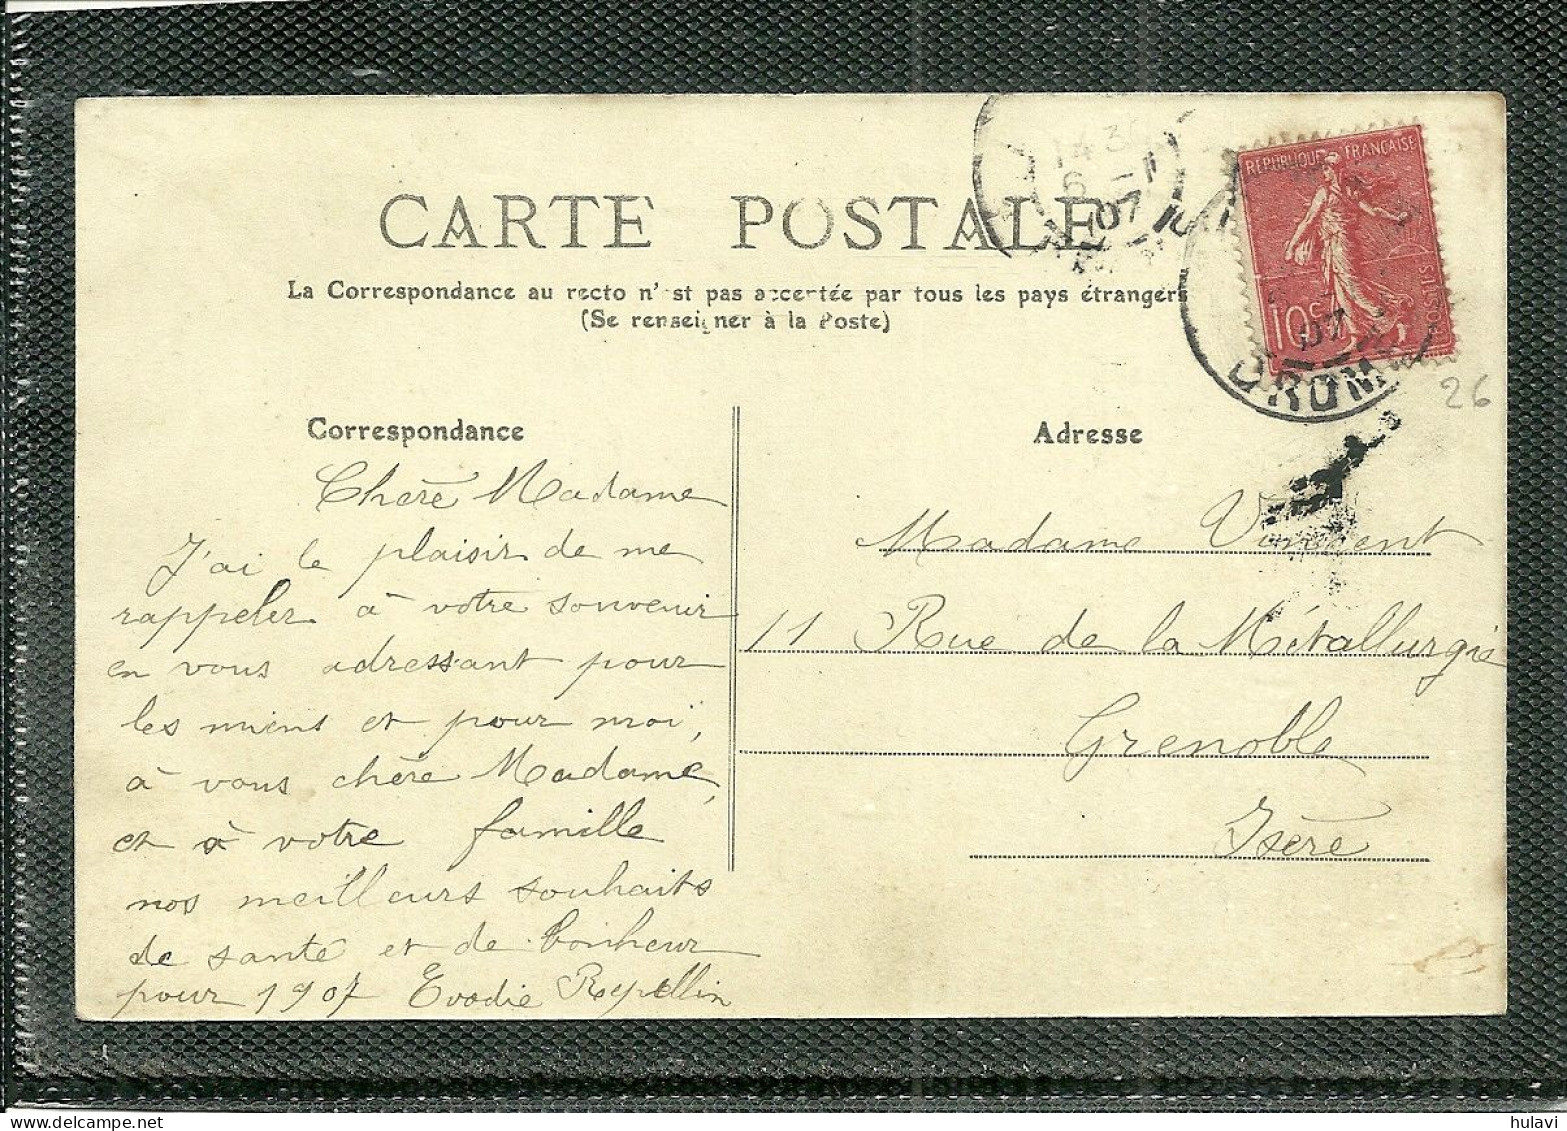 CARTE POSTALE
La Correspondance au recto n'est pas acceptée par tous les pays étrangers
(Se renseigner à la Poste)
14 30
6 - 1
07
REPUBLIQUE FRANÇAISE
POSTES
10 c
07
DROME
26
Correspondance
Chère Madame
J'ai le plaisir de me
rappeler à votre souvenir
en vous adressant pour
les miens et pour moi,
à vous chère Madame,
et à votre famille
nos meilleurs souhaits
de santé et de bonheur
pour 1907 Evodie Repellin
Adresse
Madame Vincent
11 Rue de la Métallurgie
Grenoble
Isère
hulavi